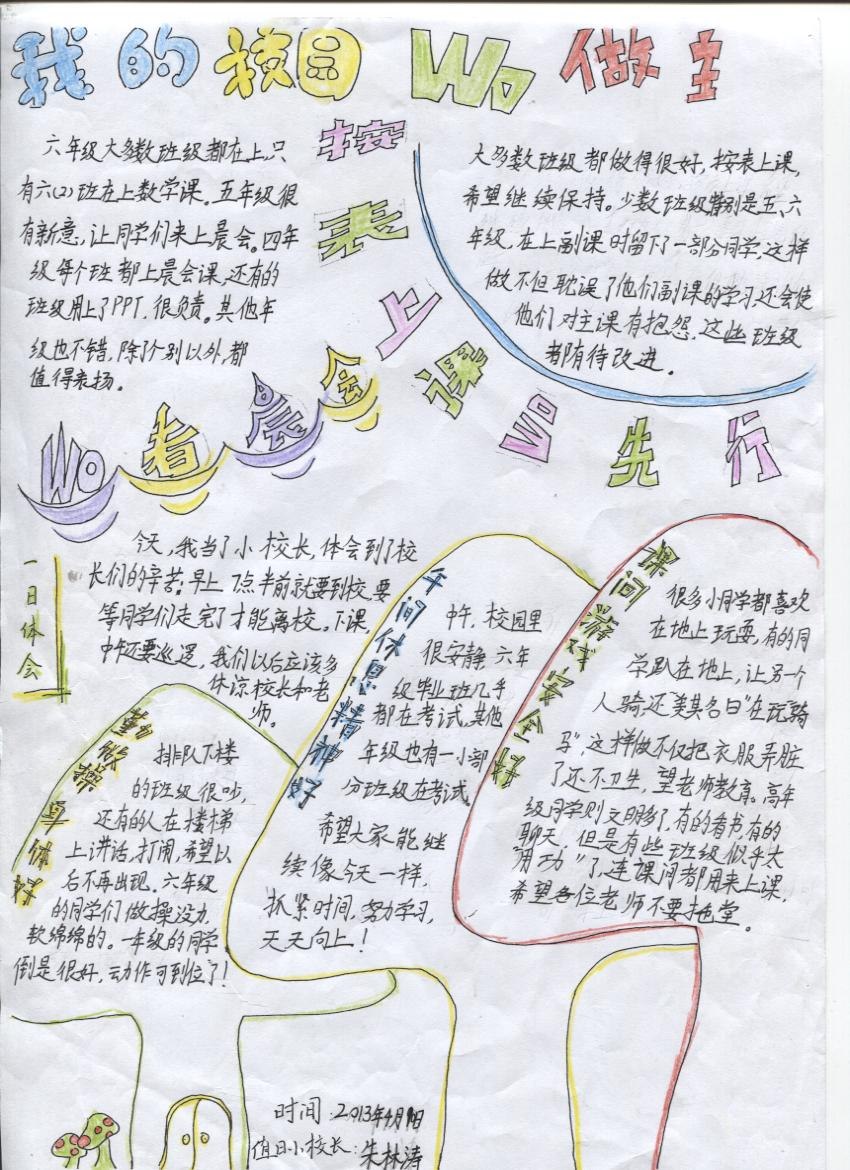 我的校园Wo做主
六年级大多数班级都在上,只
有六(2)班在上数学课。五年级很
有新意,让同学们来上晨会。四年
级每个班都上晨会课,还有的
班级用上了PPT,很负责。其他年
级也不错,除了个别以外,都
值得表扬。
按表上课Wo先行
大多数班级都做得很好,按表上课,
希望继续保持。少数班级特别是五、六
年级,在上副课时留下了一部分同学,这样
做不但耽误了他们副课的学习,还会使
他们对主课有抱怨,这些班级
都有待改进。
Wo看晨会
一日体会
今天,我当了小校长,体会到了校
长们的辛苦。早上7点半前就要到校,要
等同学们走完了才能离校。下课、
中午还要巡逻,我们以后应该多
体谅校长和老
师。
勤做操 身体好
排队下楼
的班级很吵,
还有的人在楼梯
上讲话,打闹,希望以
后不再出现。六年级
的同学们做操没力,
软绵绵的。一年级的同学
倒是很好,动作可到位了!
午间休息精神好
中午,校园里
很安静,六年
级毕业班几乎
都在考试,其他
年级也有一小部
分班级在考试,
希望大家能继
续像今天一样,
抓紧时间,努力学习,
天天向上!
课间游戏安全好
很多小同学都喜欢
在地上玩耍,有的同
学趴在地上,让另一个
人骑,还“美其名曰”在玩骑
马”,这样做不仅把衣服弄脏
了还不卫生,望老师教育。高年
级同学则文明多了,有的看书,有的
聊天,但是有些班级似乎太
“用功”了,连课间都用来上课,
希望各位老师不要拖堂。
时间:2013年4月1日
值日小校长:朱林涛